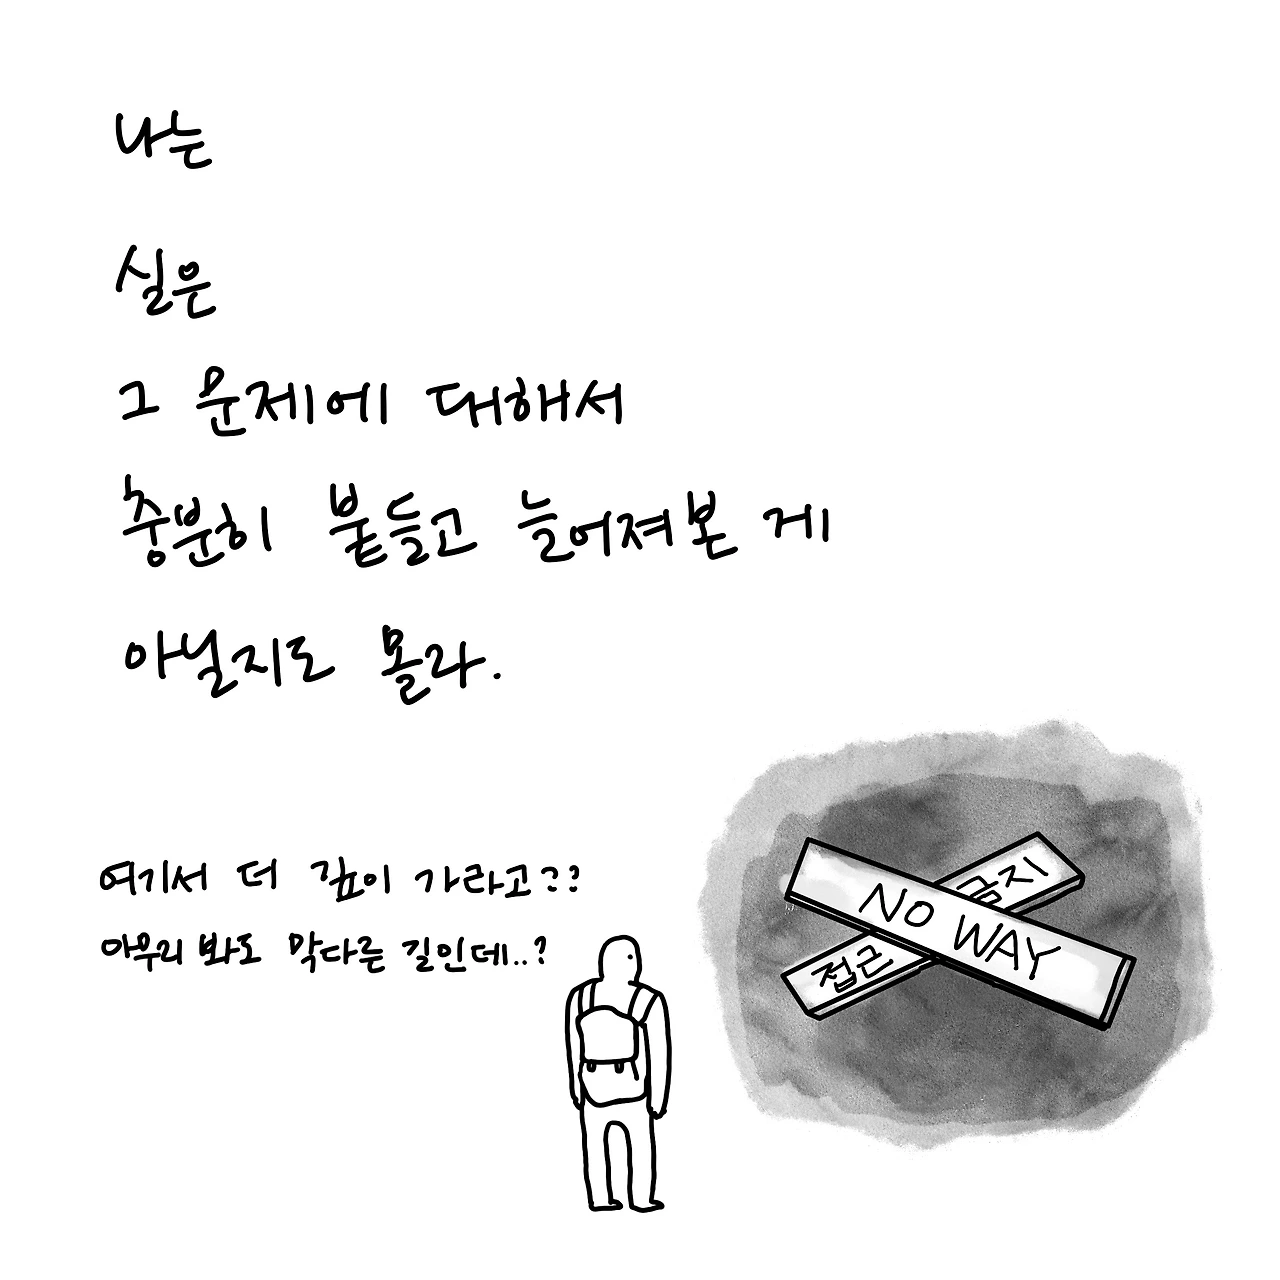 나는
실은
그 문제에 대해서
충분히 붙들고 늘어져본 게
아닐지도 몰라.
여기서 더 깊이 가라고??
아무리 봐도 막다른 길인데..?
NO WAY
접근 금지